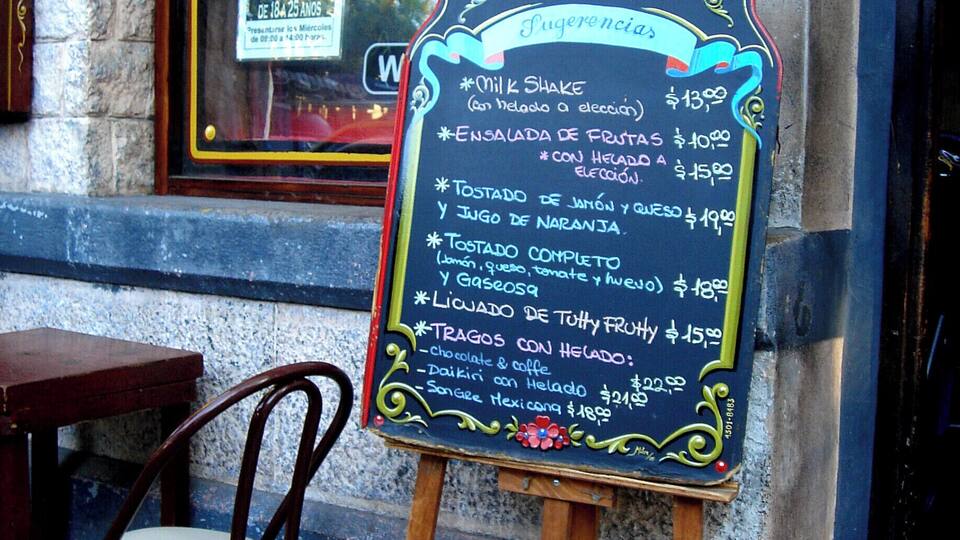 DE 18 A 25 AÑOS
Presentarse los Miércoles
de 09:00 a 14:00 horas.
W
Sugerencias
*Milk SHAKE $13,00
(con helado a elección)
*ENSALADA DE FRUTAS $10,00
*CON HELADO A $15,00
ELECCIÓN.
*TOSTADO DE JAMÓN y QUESO $19,00
Y JUGO DE NARANJA.
*TOSTADO COMPLETO
(Jamón, queso, tomate y huevo) $18,00
y Gaseosa
*LICUADO DE Tutty FRUTTy $15,00
*TRAGOS CON HELADO:
-chocolate & coffe $22,00
-Daikiri con Helado $21,00
-Sangre Mexicana $18,00
4301-8483